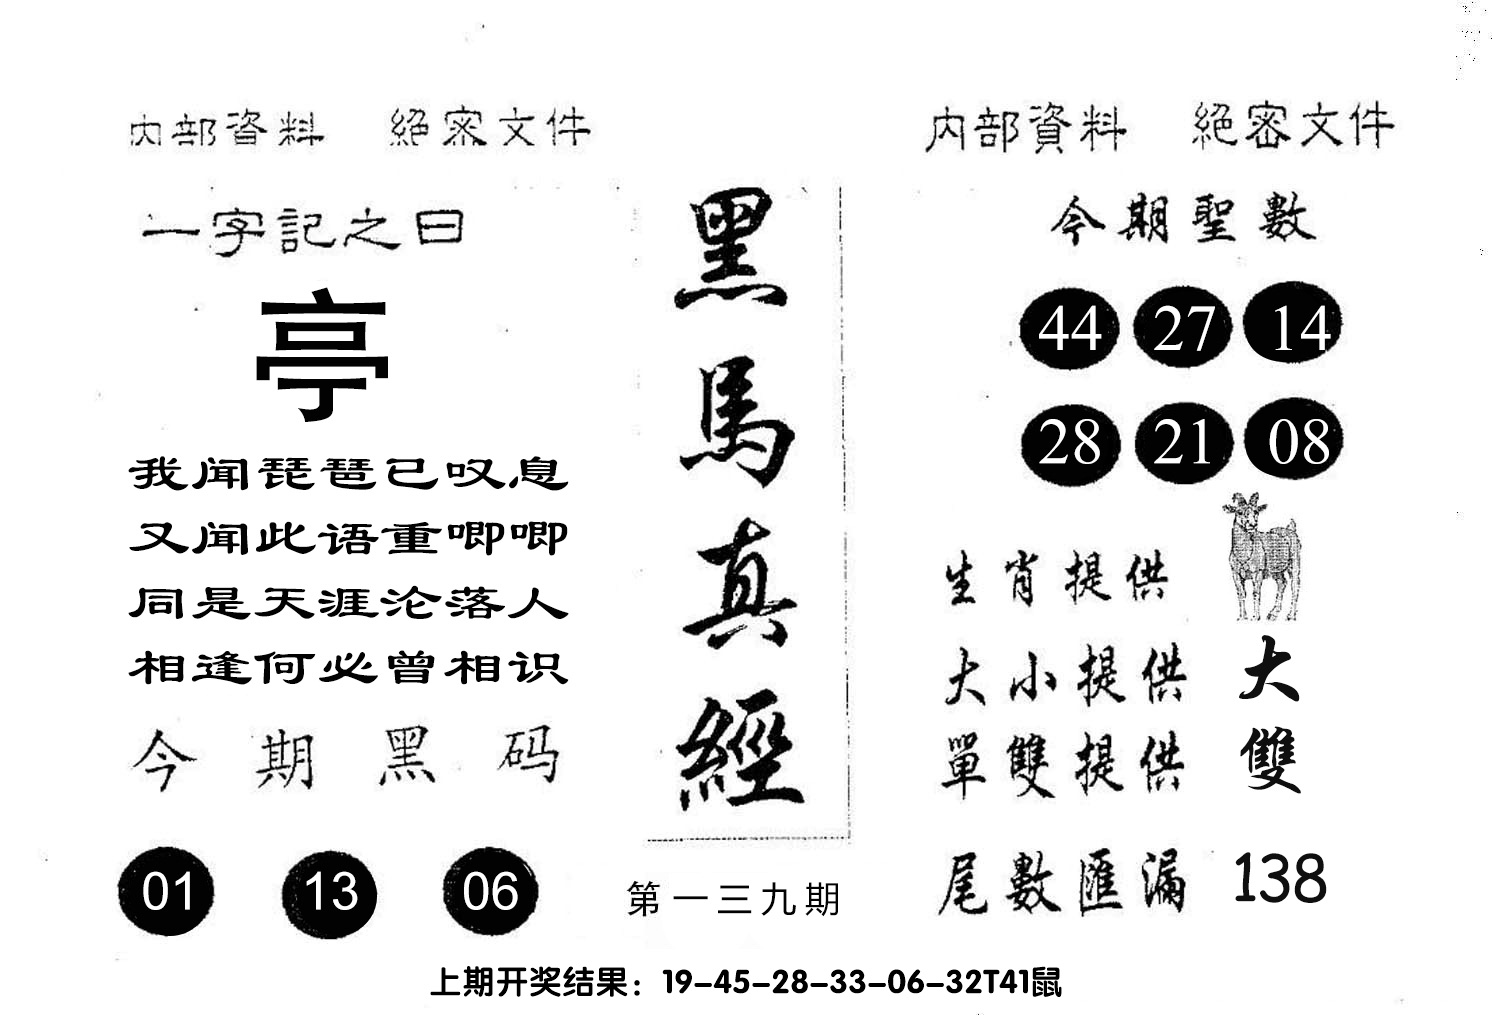 内部資料 絕密文件
一字記之曰
亭
我闻琵琶已叹息
又闻此语重唧唧
同是天涯沦落人
相逢何必曾相识
今期黑码
01 13 06
黑馬真經
第一三九期
内部資料 絕密文件
今期聖數
44 27 14
28 21 08
生肖提供
大小提供 大
單雙提供 雙
尾數匯漏 138
上期开奖结果：19-45-28-33-06-32T41鼠